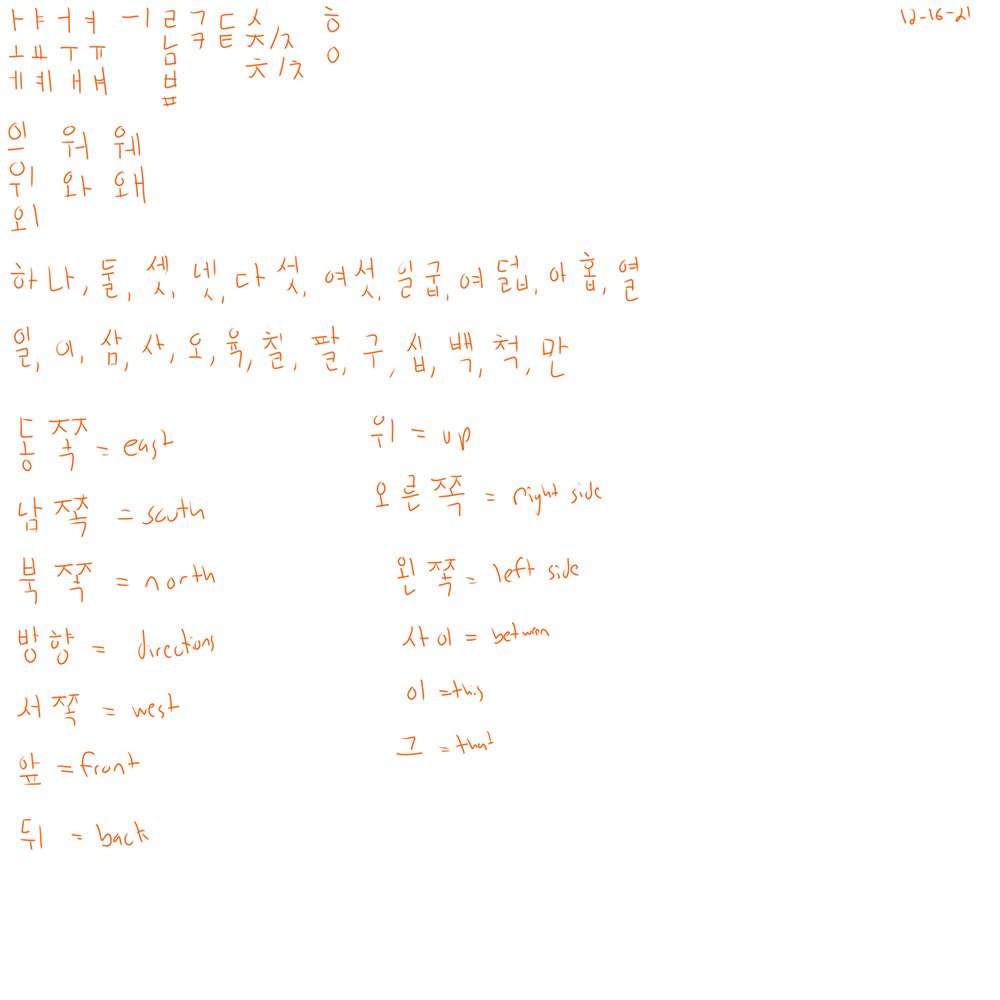 ㅏ ㅑ ㅓ ㅕ ㅡ ㅣ ㄹ ㄱ ㄷ ㅅ ㅎ 12-16-21
ㅗ ㅛ ㅜ ㅠ ㄴ ㅋ ㅌ ㅈ/ㅈ ㅇ
ㅔ ㅖ ㅐ ㅒ ㅁ ㅊ/ㅊ
ㅂ
ㅍ
의 워 웨
위 와 왜
외
하나, 둘, 셋, 넷, 다섯, 여섯, 일굽, 여덟, 아홉, 열
일, 이, 삼, 사, 오, 육, 칠, 팔, 구, 십, 백, 척, 만
동쪽 = east
남쪽 = south
북쪽 = north
방향 = directions
서쪽 = west
앞 = front
뒤 = back
위 = up
오른쪽 = right side
왼쪽 = left side
사이 = between
이 = this
그 = that